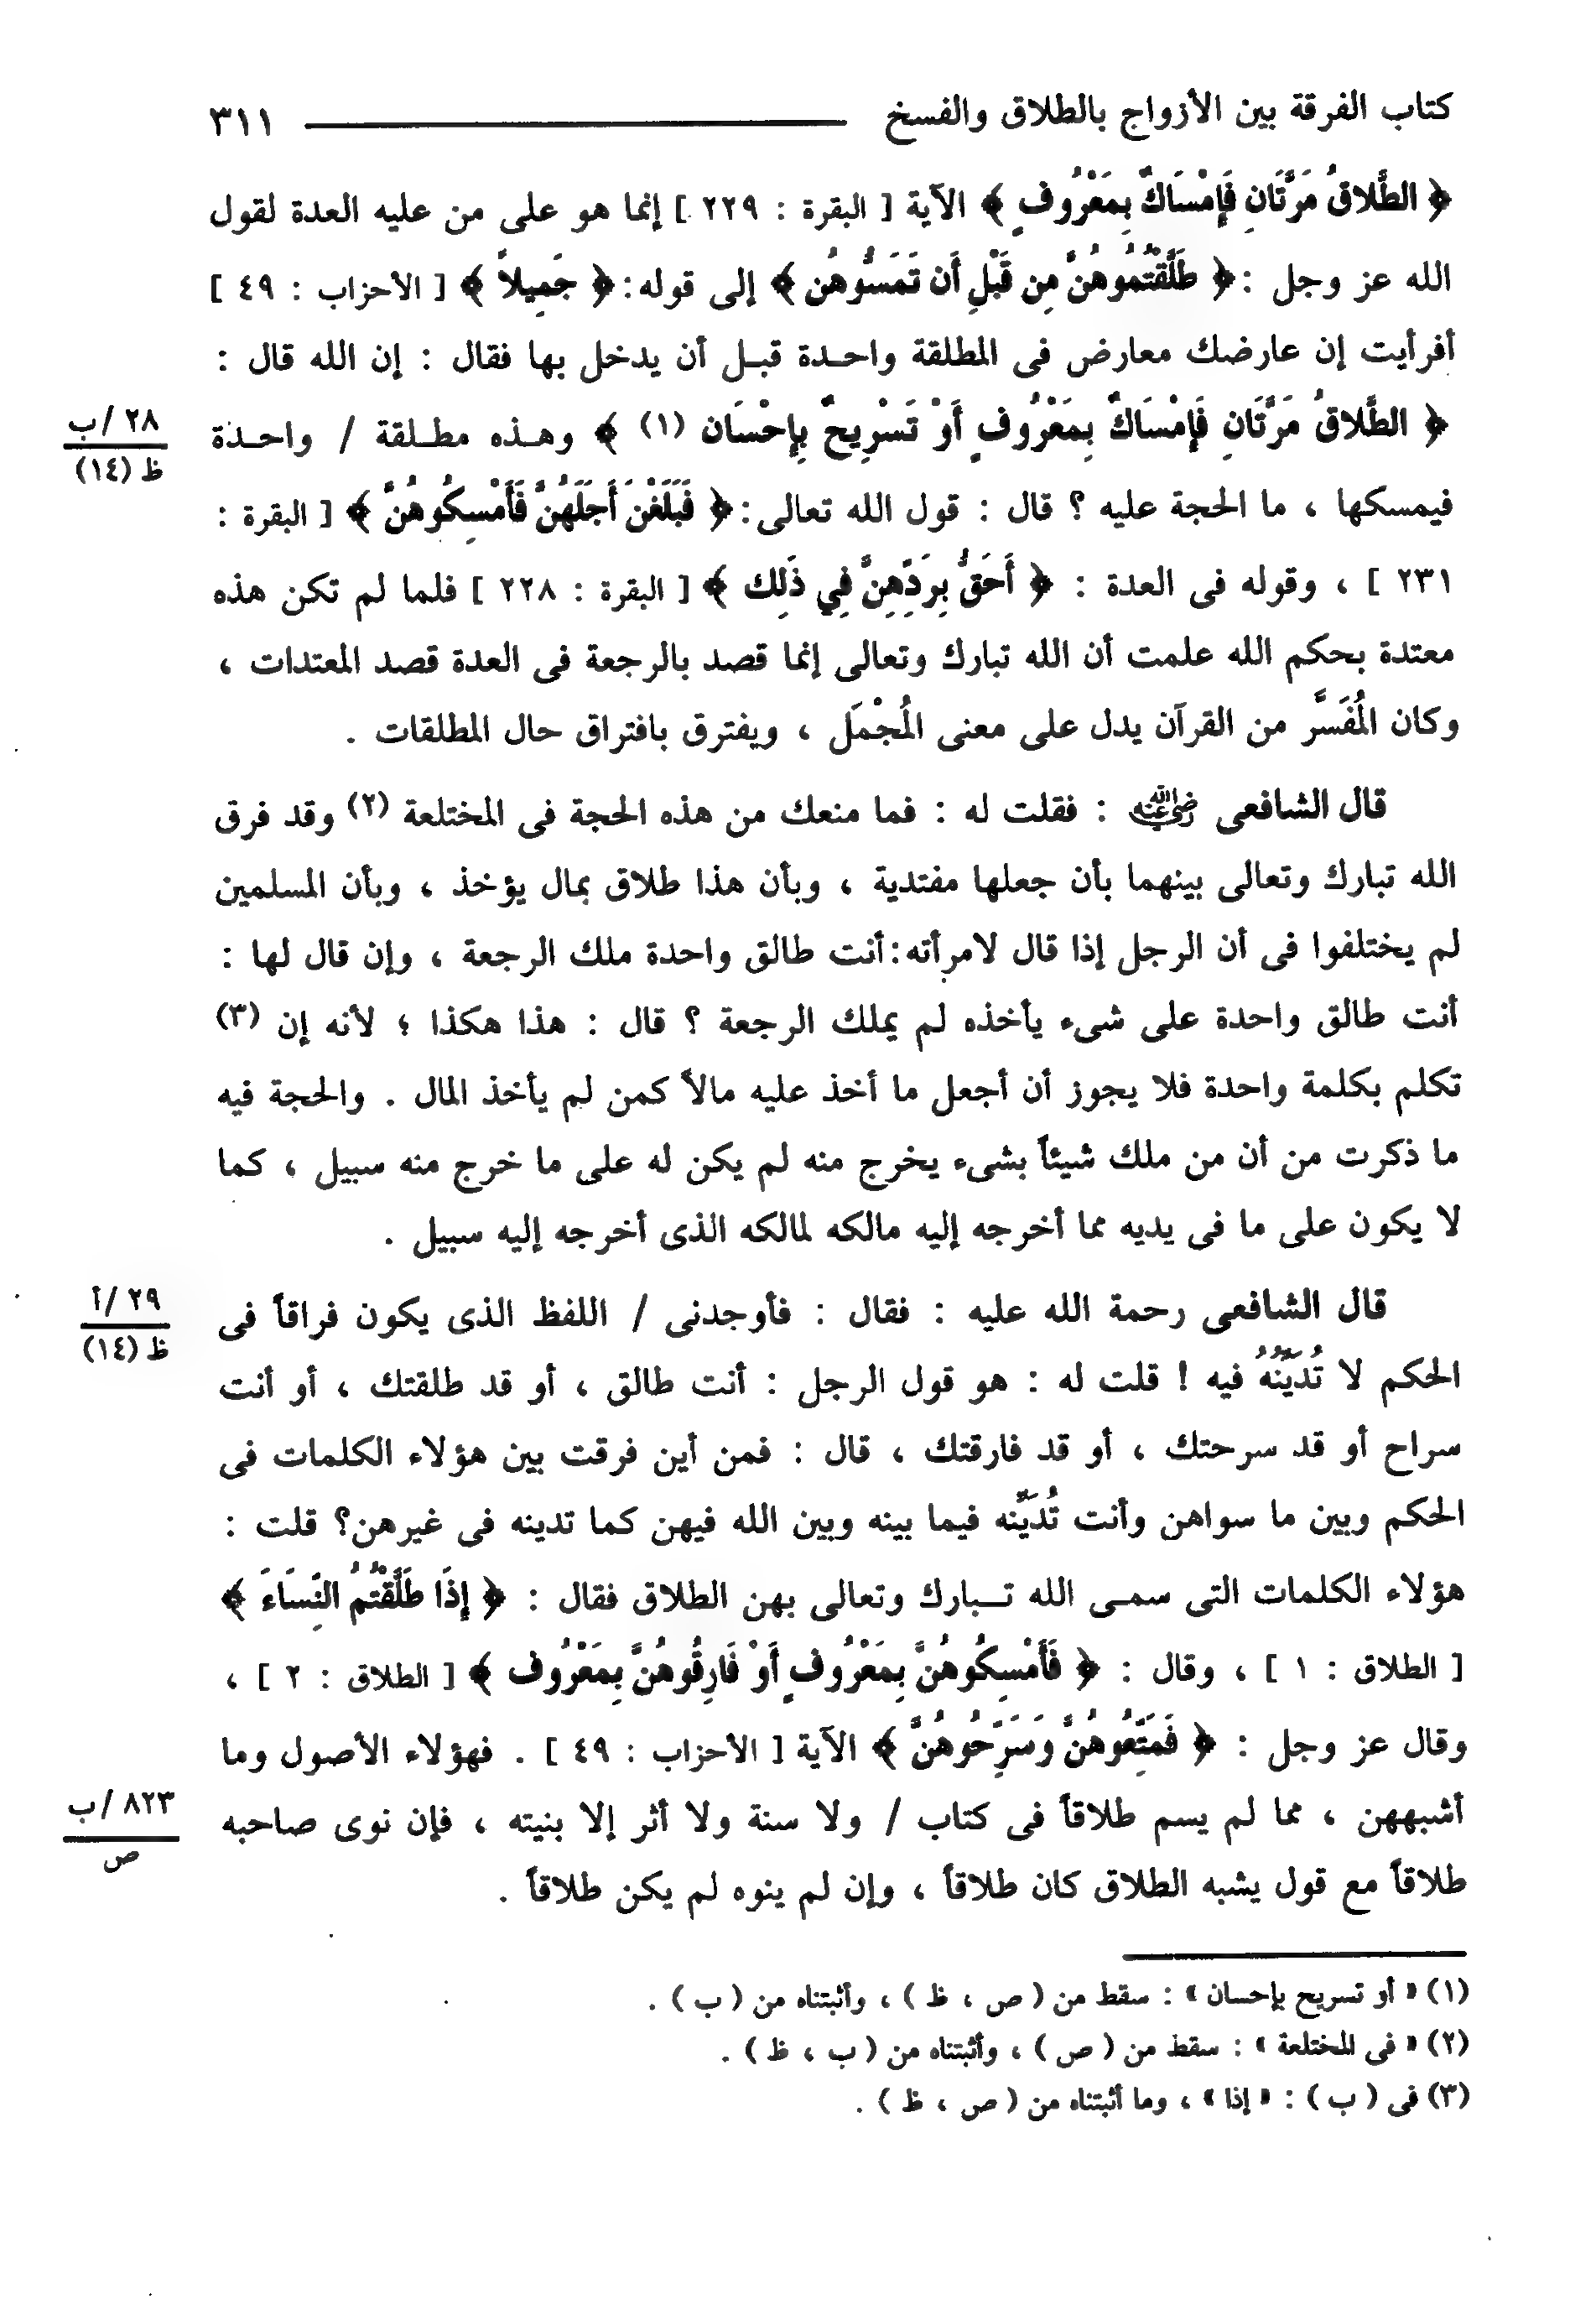 كتاب الفرقة بين الأزواج بالطلاق والفسخ ــــــــــ ٣١١
﴿ الطَّلاقُ مَرَّتَانِ فَإِمْسَاكٌ بِمَعْرُوفٍ ﴾ الآية [ البقرة : ٢٢٩ ] إنما هو على من عليه العدة لقول
الله عز وجل :﴿ طَلَّقْتُمُوهُنَّ مِن قَبْلِ أَن تَمَسُّوهُن ﴾ إلى قوله:﴿ جَمِيلاً ﴾ [ الأحزاب : ٤٩ ]
أفرأيت إن عارضك معارض فى المطلقة واحـدة قبـل أن يدخل بها فقال : إن الله قال :
﴿ الطَّلاقُ مَرَّتَانِ فَإِمْسَاكٌ بِمَعْرُوفٍ أَوْ تَسْرِيحٌ بِإِحْسَان (١) ﴾ وهـذه مطـلقة / واحـدة
٢٨ /ب
ظ (١٤)
فيمسكها ، ما الحجة عليه ؟ قال : قول الله تعالى:﴿ فَبَلَغْنَ أَجَلَهُنَّ فَأَمْسِكُوهُنَّ ﴾ [ البقرة :
٢٣١ ] ، وقوله فى العدة : ﴿ أَحَقُّ بِرَدِّهِنَّ فِي ذَلِك ﴾ [ البقرة : ٢٢٨ ] فلما لم تكن هذه
معتدة بحكم الله علمت أن الله تبارك وتعالى إنما قصد بالرجعة فى العدة قصد المعتدات ،
وكان المُفَسَّر من القرآن يدل على معنى المُجْمَل ، ويفترق بافتراق حال المطلقات .
قال الشافعى رضي الله عنه : فقلت له : فما منعك من هذه الحجة فى المختلعة (٢) وقد فرق
الله تبارك وتعالى بينهما بأن جعلها مفتدية ، وبأن هذا طلاق بمال يؤخذ ، وبأن المسلمين
لم يختلفوا فى أن الرجل إذا قال لامرأته:أنت طالق واحدة ملك الرجعة ، وإن قال لها :
أنت طالق واحدة على شىء يأخذه لم يملك الرجعة ؟ قال : هذا هكذا ؛ لأنه إن (٣)
تكلم بكلمة واحدة فلا يجوز أن أجعل ما أخذ عليه مالاً كمن لم يأخذ المال . والحجة فيه
ما ذكرت من أن من ملك شيئاً بشىء يخرج منه لم يكن له على ما خرج منه سبيل ، كما
لا يكون على ما فى يديه مما أخرجه إليه مالكه لمالكه الذى أخرجه إليه سبيل .
قال الشافعى رحمة الله عليه : فقال : فأوجدنى / اللفظ الذى يكون فراقاً فى
٢٩ /أ
ظ (١٤)
الحكم لا تُدَيِّنُهُ فيه ! قلت له : هو قول الرجل : أنت طالق ، أو قد طلقتك ، أو أنت
سراح أو قد سرحتك ، أو قد فارقتك ، قال : فمن أين فرقت بين هؤلاء الكلمات فى
الحكم وبين ما سواهن وأنت تُدَيِّنه فيما بينه وبين الله فيهن كما تدينه فى غيرهن؟ قلت :
هؤلاء الكلمات التى سمـى الله تـبارك وتعالى بهن الطلاق فقال : ﴿ إِذَا طَلَّقْتُمُ النِّسَاءَ ﴾
[ الطلاق : ١ ] ، وقال : ﴿ فَأَمْسِكُوهُنَّ بِمَعْرُوفٍ أَوْ فَارِقُوهُنَّ بِمَعْرُوف ﴾ [ الطلاق : ٢ ] ،
وقال عز وجل : ﴿ فَمَتِّعُوهُنَّ وَسَرِّحُوهُنَّ ﴾ الآية [ الأحزاب : ٤٩ ] . فهؤلاء الأصول وما
أشبههن ، مما لم يسم طلاقاً فى كتاب / ولا سنة ولا أثر إلا بنيته ، فإن نوى صاحبه
٨٢٣ /ب
ص
طلاقاً مع قول يشبه الطلاق كان طلاقاً ، وإن لم ينوه لم يكن طلاقاً .
(١) « أو تسريح بإحسان » : سقط من ( ص ، ظ ) ، وأثبتناه من ( ب ) .
(٢) « فى المختلعة » : سقط من ( ص ) ، وأثبتناه من ( ب ، ظ ) .
(٣) فى ( ب ) : « إذا » ، وما أثبتناه من ( ص ، ظ ) .